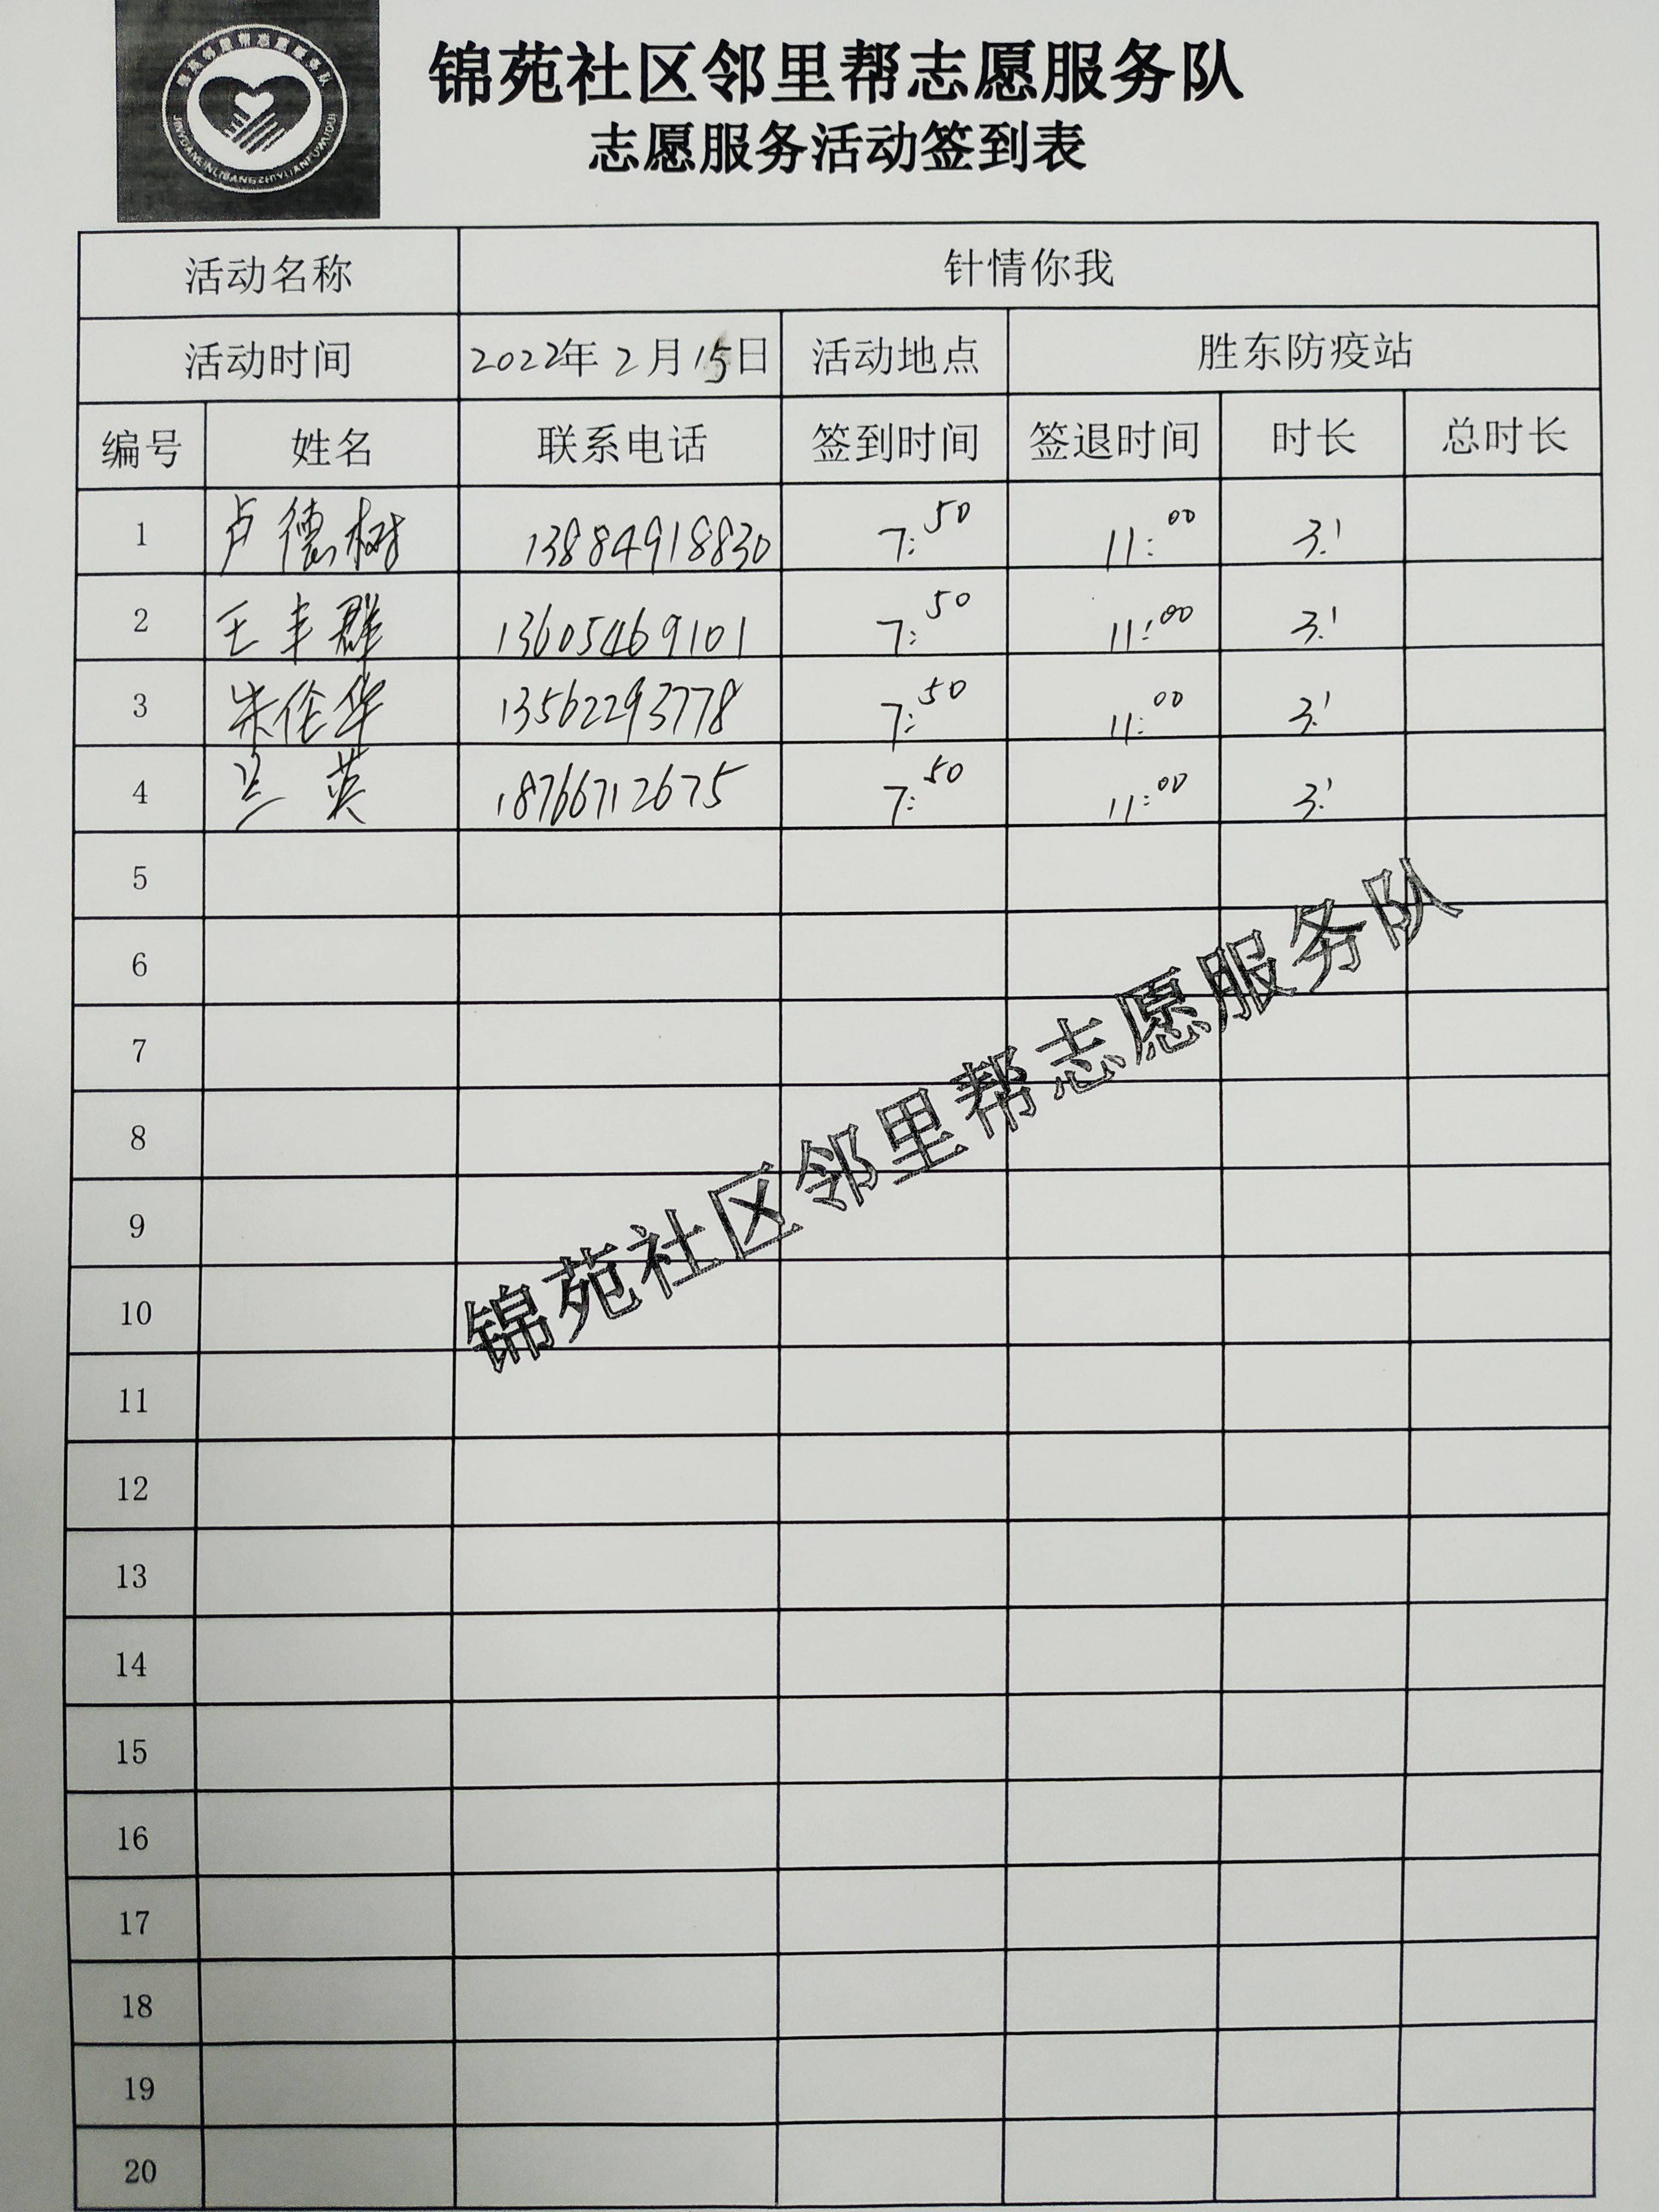 锦苑社区邻里帮志愿服务队
志愿服务活动签到表
活动名称 针情你我
活动时间 2022年2月15日 活动地点 胜东防疫站
编号 姓名 联系电话 签到时间 签退时间 时长 总时长
1 卢德树 13884918830 7:50 11:00 3.1
2 王丰群 13605469101 7:50 11:00 3.1
3 朱伦华 13562293778 7:50 11:00 3.1
4 兰英 18766712675 7:50 11:00 3.1
5
6
7
8
9
10
11
12
13
14
15
16
17
18
19
20
锦苑社区邻里帮志愿服务队